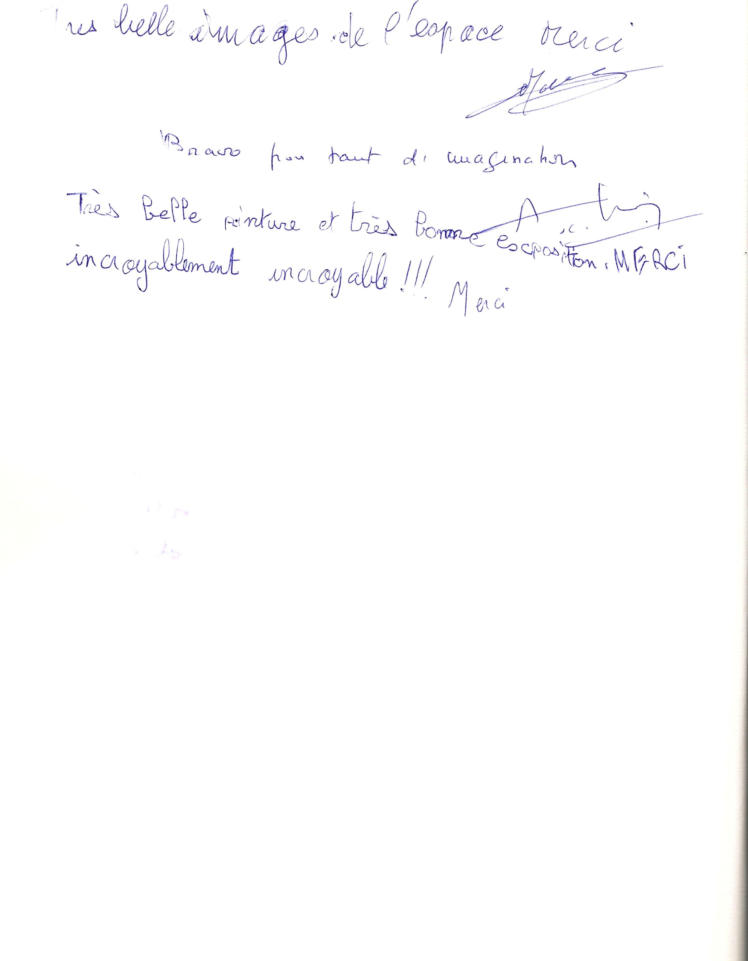 Tres belle images de l'espace Merci
Bravo pour tant d'imagination
Très belle peinture et très bonne exposition. MERCI
incroyablement incroyable !!! Merci